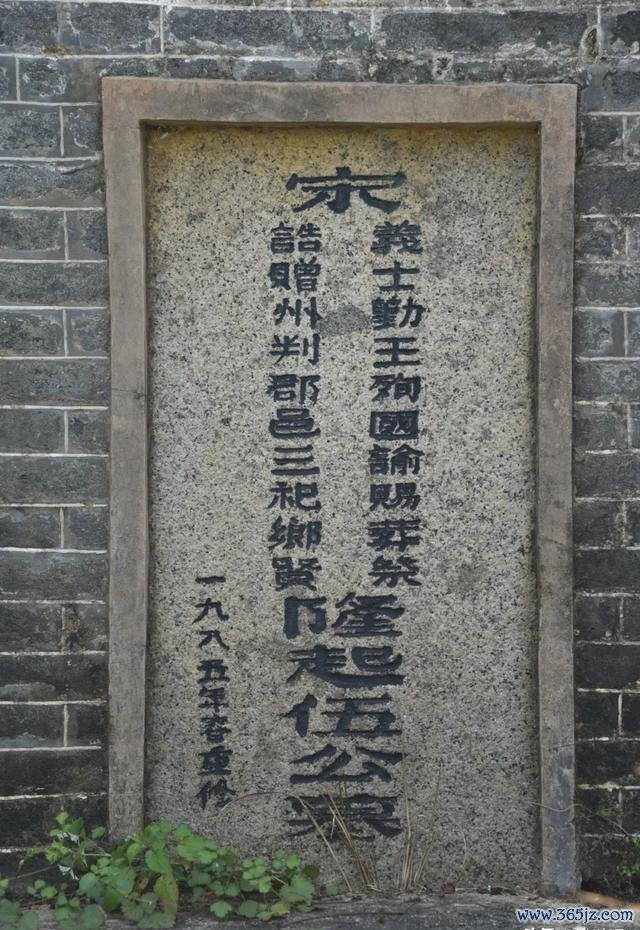 宋
義士勤王殉國諭賜葬祭
誥贈州判郡邑三祀鄉賢
隆起伍公墓
一九八五年春重修
www.365jz.com